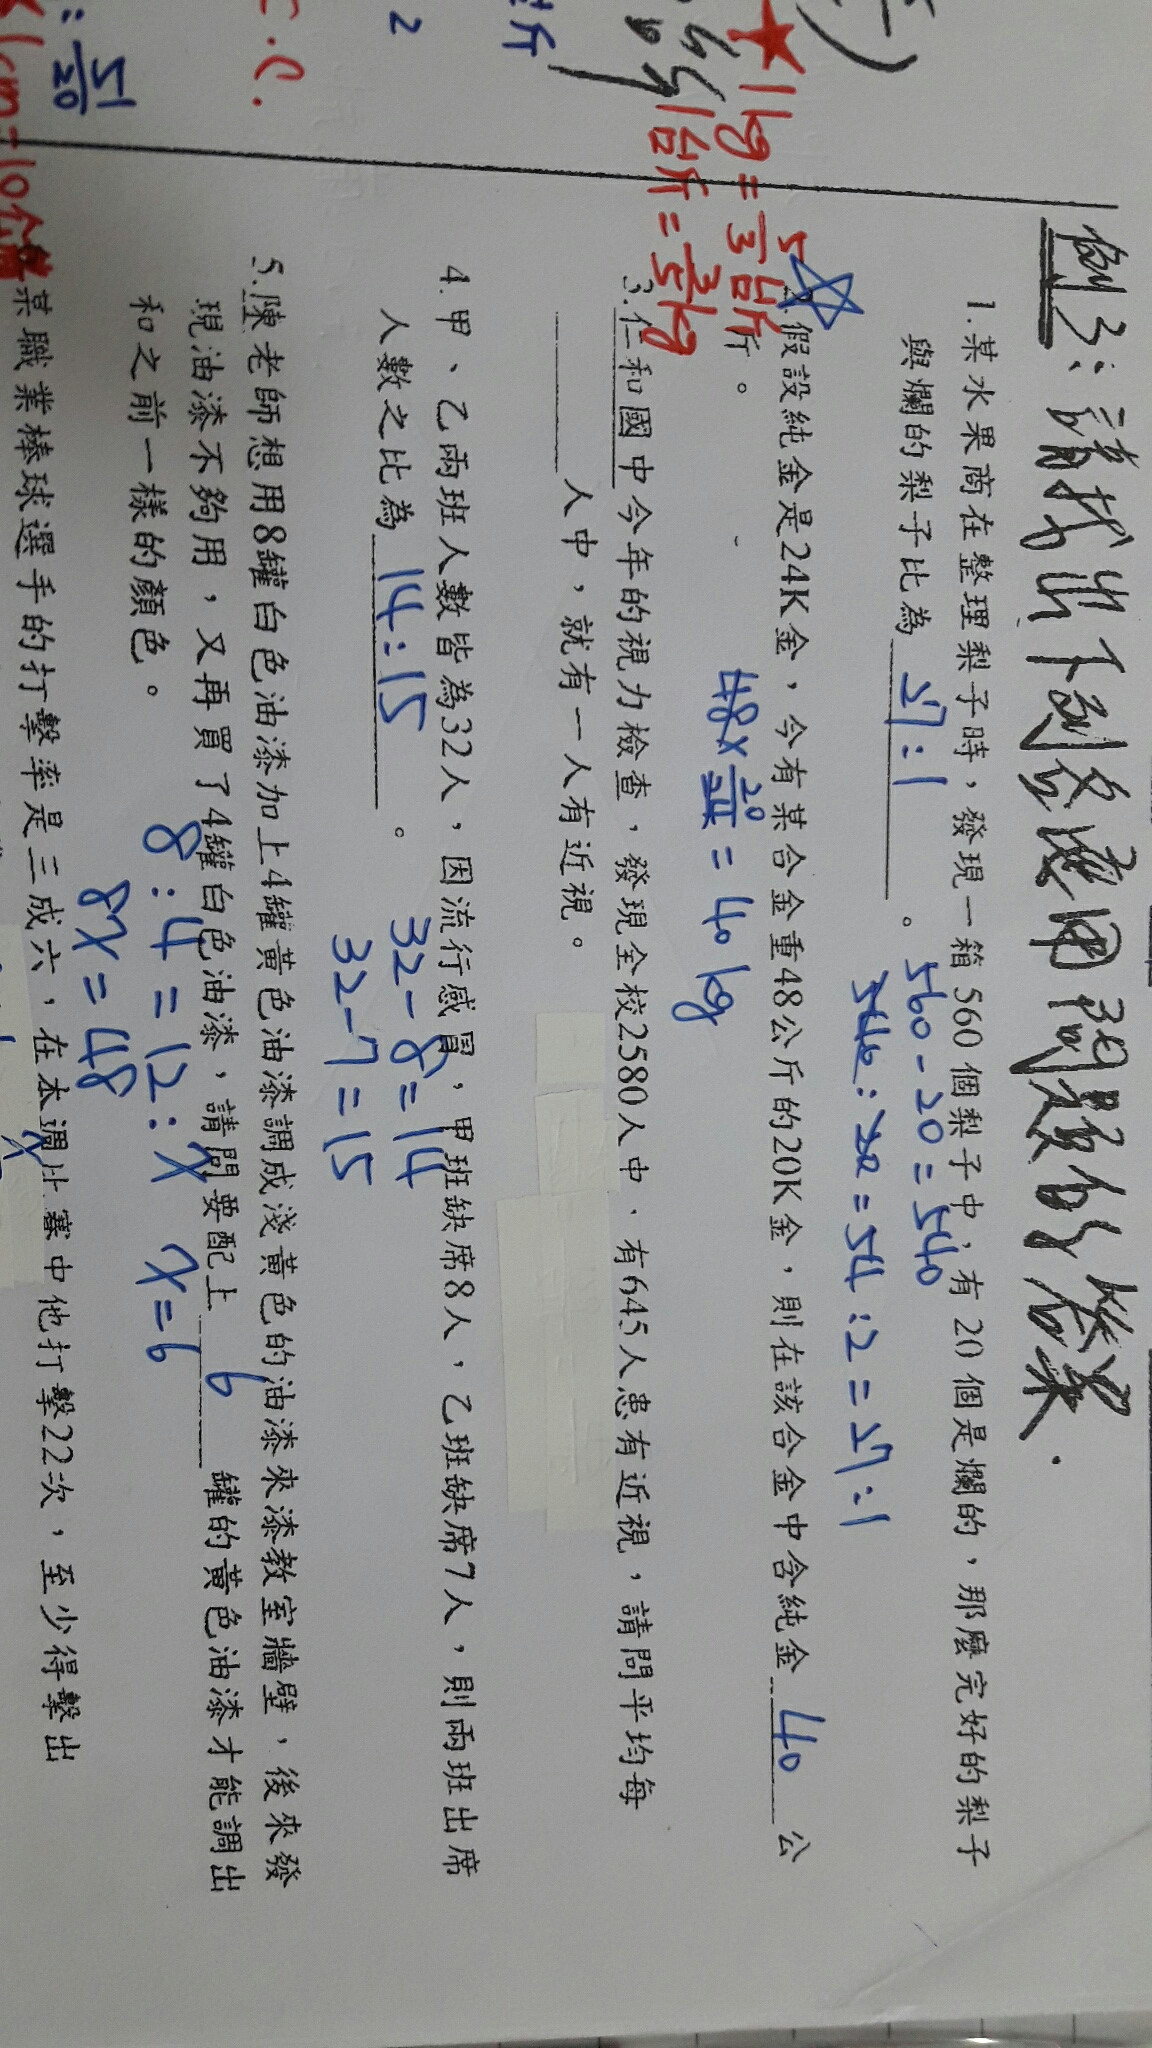 例3：請找出下列各應用問題的答案.
1.某水果商在整理梨子時，發現一箱560個梨子中，有20個是爛的，那麼完好的梨子
與爛的梨子比為 27:1 。
560-20=540
540:20=54:2=27:1
假設純金是24K金，今有某合金重48公斤的20K金，則在該合金中含純金 40 公
斤。
48×20/24=40 kg
3.仁和國中今年的視力檢查，發現全校2580人中，有645人患有近視，請問平均每
人中，就有一人有近視。
4.甲、乙兩班人數皆為32人，因流行感冒，甲班缺席8人，乙班缺席7人，則兩班出席
人數之比為 14:15 。
32-8=14
32-7=15
5.陳老師想用8罐白色油漆加上4罐黃色油漆調成淺黃色的油漆來漆教室牆壁，後來發
現油漆不夠用，又再買了4罐白色油漆，請問要配上 6 罐的黃色油漆才能調出
和之前一樣的顏色。
8:4=12:x x=6
8x=48
某職業棒球選手的打擊率是三成六，在本週比賽中他打擊22次，至少得擊出
★1kg=5/3台斤
1台斤=3/5kg
斤
2
51/20
1cm=10公釐